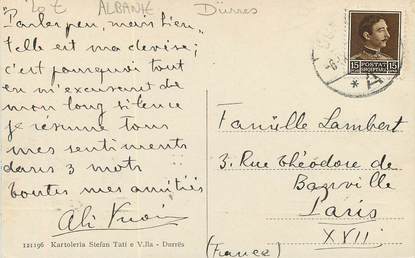 ALBANIE
Dürres
"Parler peu, mais bien"
telle est ma devise;
c'est pourquoi tout
en m'excusant de
mon long silence
je résume tous
mes sentiments
dans 3 mots
toutes mes amitiés
Ali
121196 Kartoleria Stefan Tati e V.lla - Durrës
15 POSTAT 15
SHQIPTARE
Famille Lambert
3. Rue Théodore de
Banville
Paris
XVII
(France)